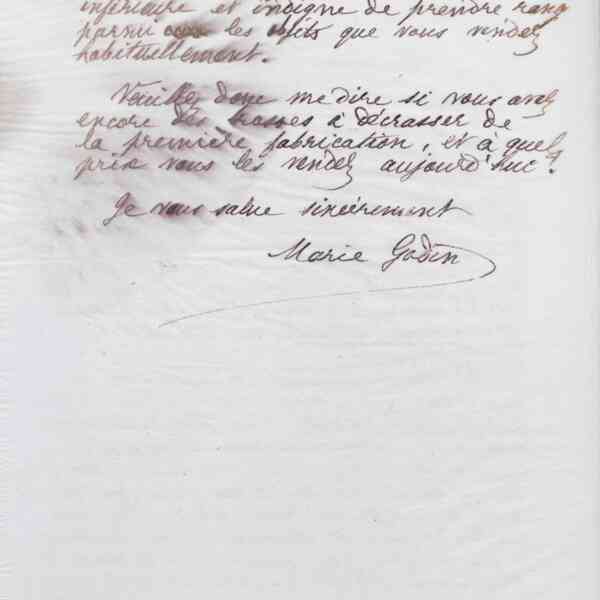 inférieure et indigne de prendre rang
parmi les objets que vous vendez
habituellement.
Veuillez donc me dire si vous avez
encore des brosses à décrasser de
la première fabrication, et à quel
prix vous les vendez aujourd'hui.
Je vous salue sincèrement
Marie Godin